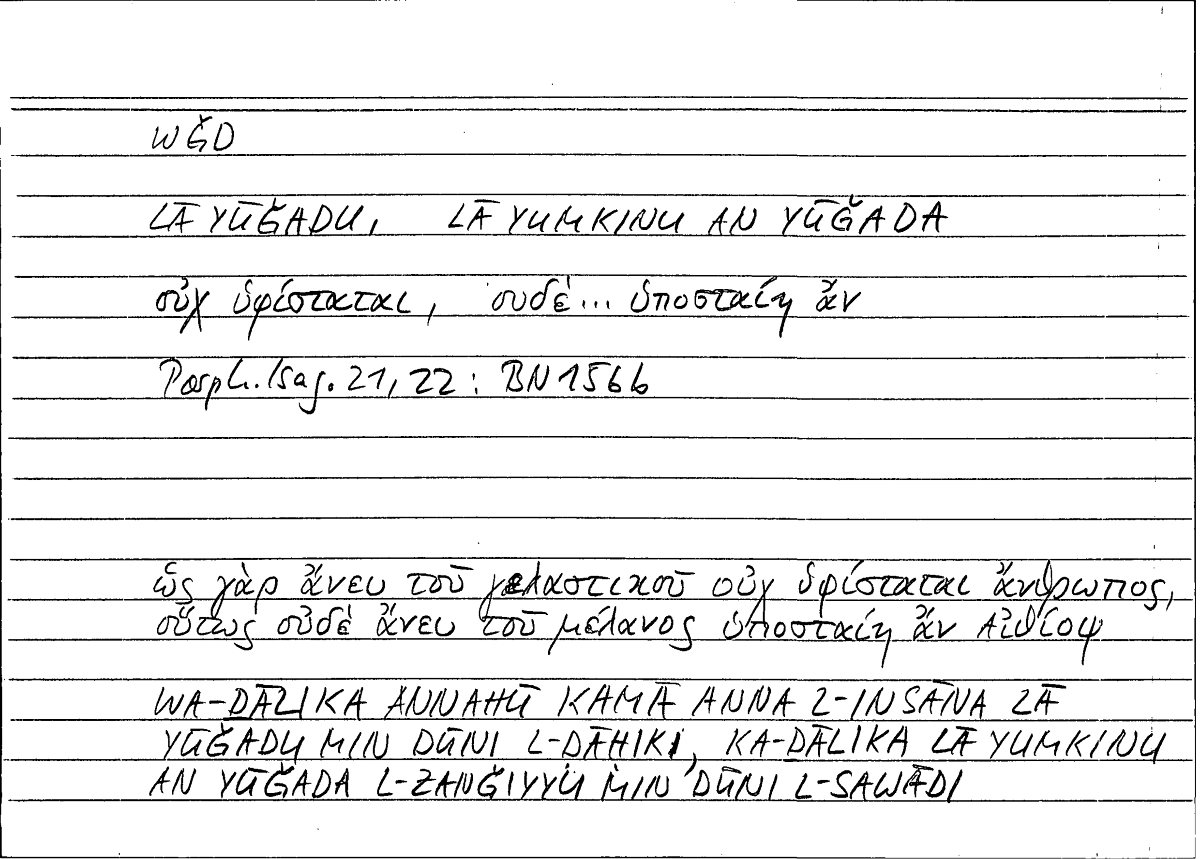 WǦD
LĀ YŪǦADU, LĀ YUMKINU AN YŪǦADA
οὐχ ὑφίσταται, ουδέ... ὑποσταίη ἄν
Porph. Isag. 21, 22: BN 156b
ὡς γὰρ ἄνευ τοῦ γελαστικοῦ οὐχ ὑφίσταται ἄνθρωπος,
οὕτως οὐδὲ ἄνευ τοῦ μέλανος ὑποσταίη ἄν Αἰθίοψ
WA-ḎĀLIKA ANNAHŪ KAMĀ ANNA L-INSĀNA LĀ
YŪǦADU MIN DŪNI L-DĀHIKI, KA-ḎĀLIKA LĀ YUMKINU
AN YŪǦADA L-ZANǦIYYU MIN DŪNI L-SAWĀDI